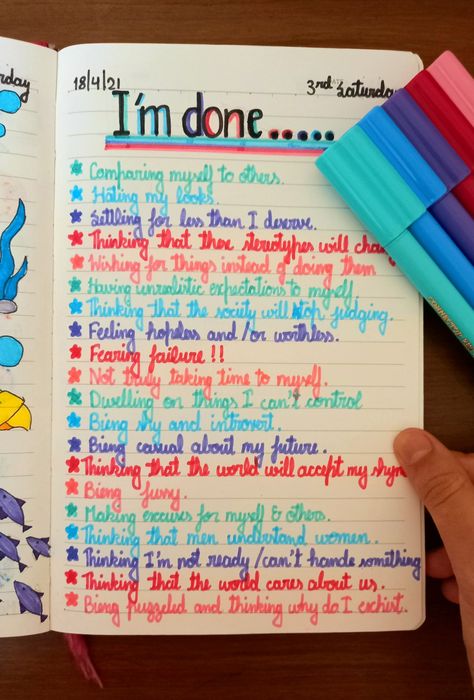 rday
18/4/21
3rd Saturday
I'm done.....
Comparing myself to others.
Hating my looks.
Settling for less than I deserve.
Thinking that these sterotypes will chang
Wishing for things instead of doing them
Having unrealistic expectations to myself
Thinking that the society will stop judging.
Feeling hopeless and/or worthless.
Fearing failure !!
Not truly taking time to myself.
Dwelling on things I can't control
Bieng shy and introvert.
Bieng casual about my future.
Thinking that the world will accept my shyn
Bieng funy.
Making excuses for myself & others.
Thinking that men understand women.
Thinking I'm not ready/can't hande something
Thinking that the world cares about us.
Bieng puzzeled and thinking why do I exchist.